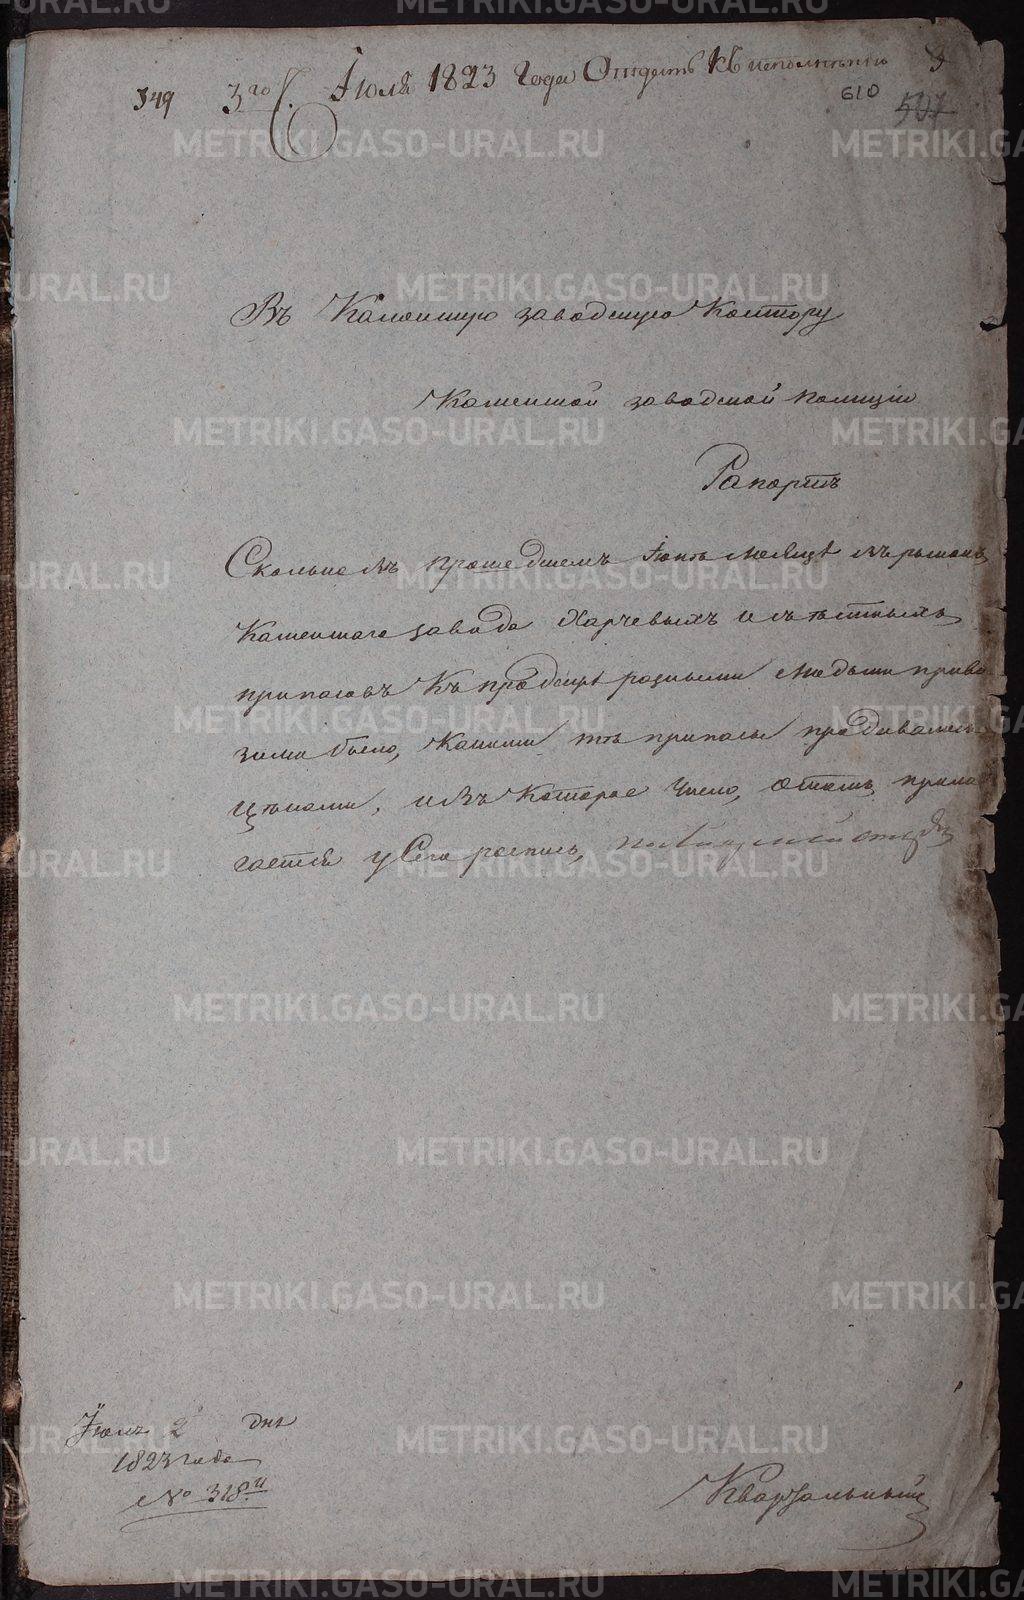 349 3го Июля 1823 Года Отдать къ исполненїю 3
610 507
Въ Каменскую заводскую Контору
Каменской заводской полицїи
Рапортъ
Сколько въ прошедшемъ Їюнѣ месяцѣ въ рынокъ
Каменскаго завода Харчевыхъ и съѣстныхъ
припасовъ Къ продажѣ разными людьми приво
зимо было, Какими тѣ припасы продавались
Цѣнами, и въ Которое Число, Отомъ прила
гается у Сего роспись,
Їюля 2 дня
1823 года
№ 318й
Квартальный
METRIKI.GASO-URAL.RU